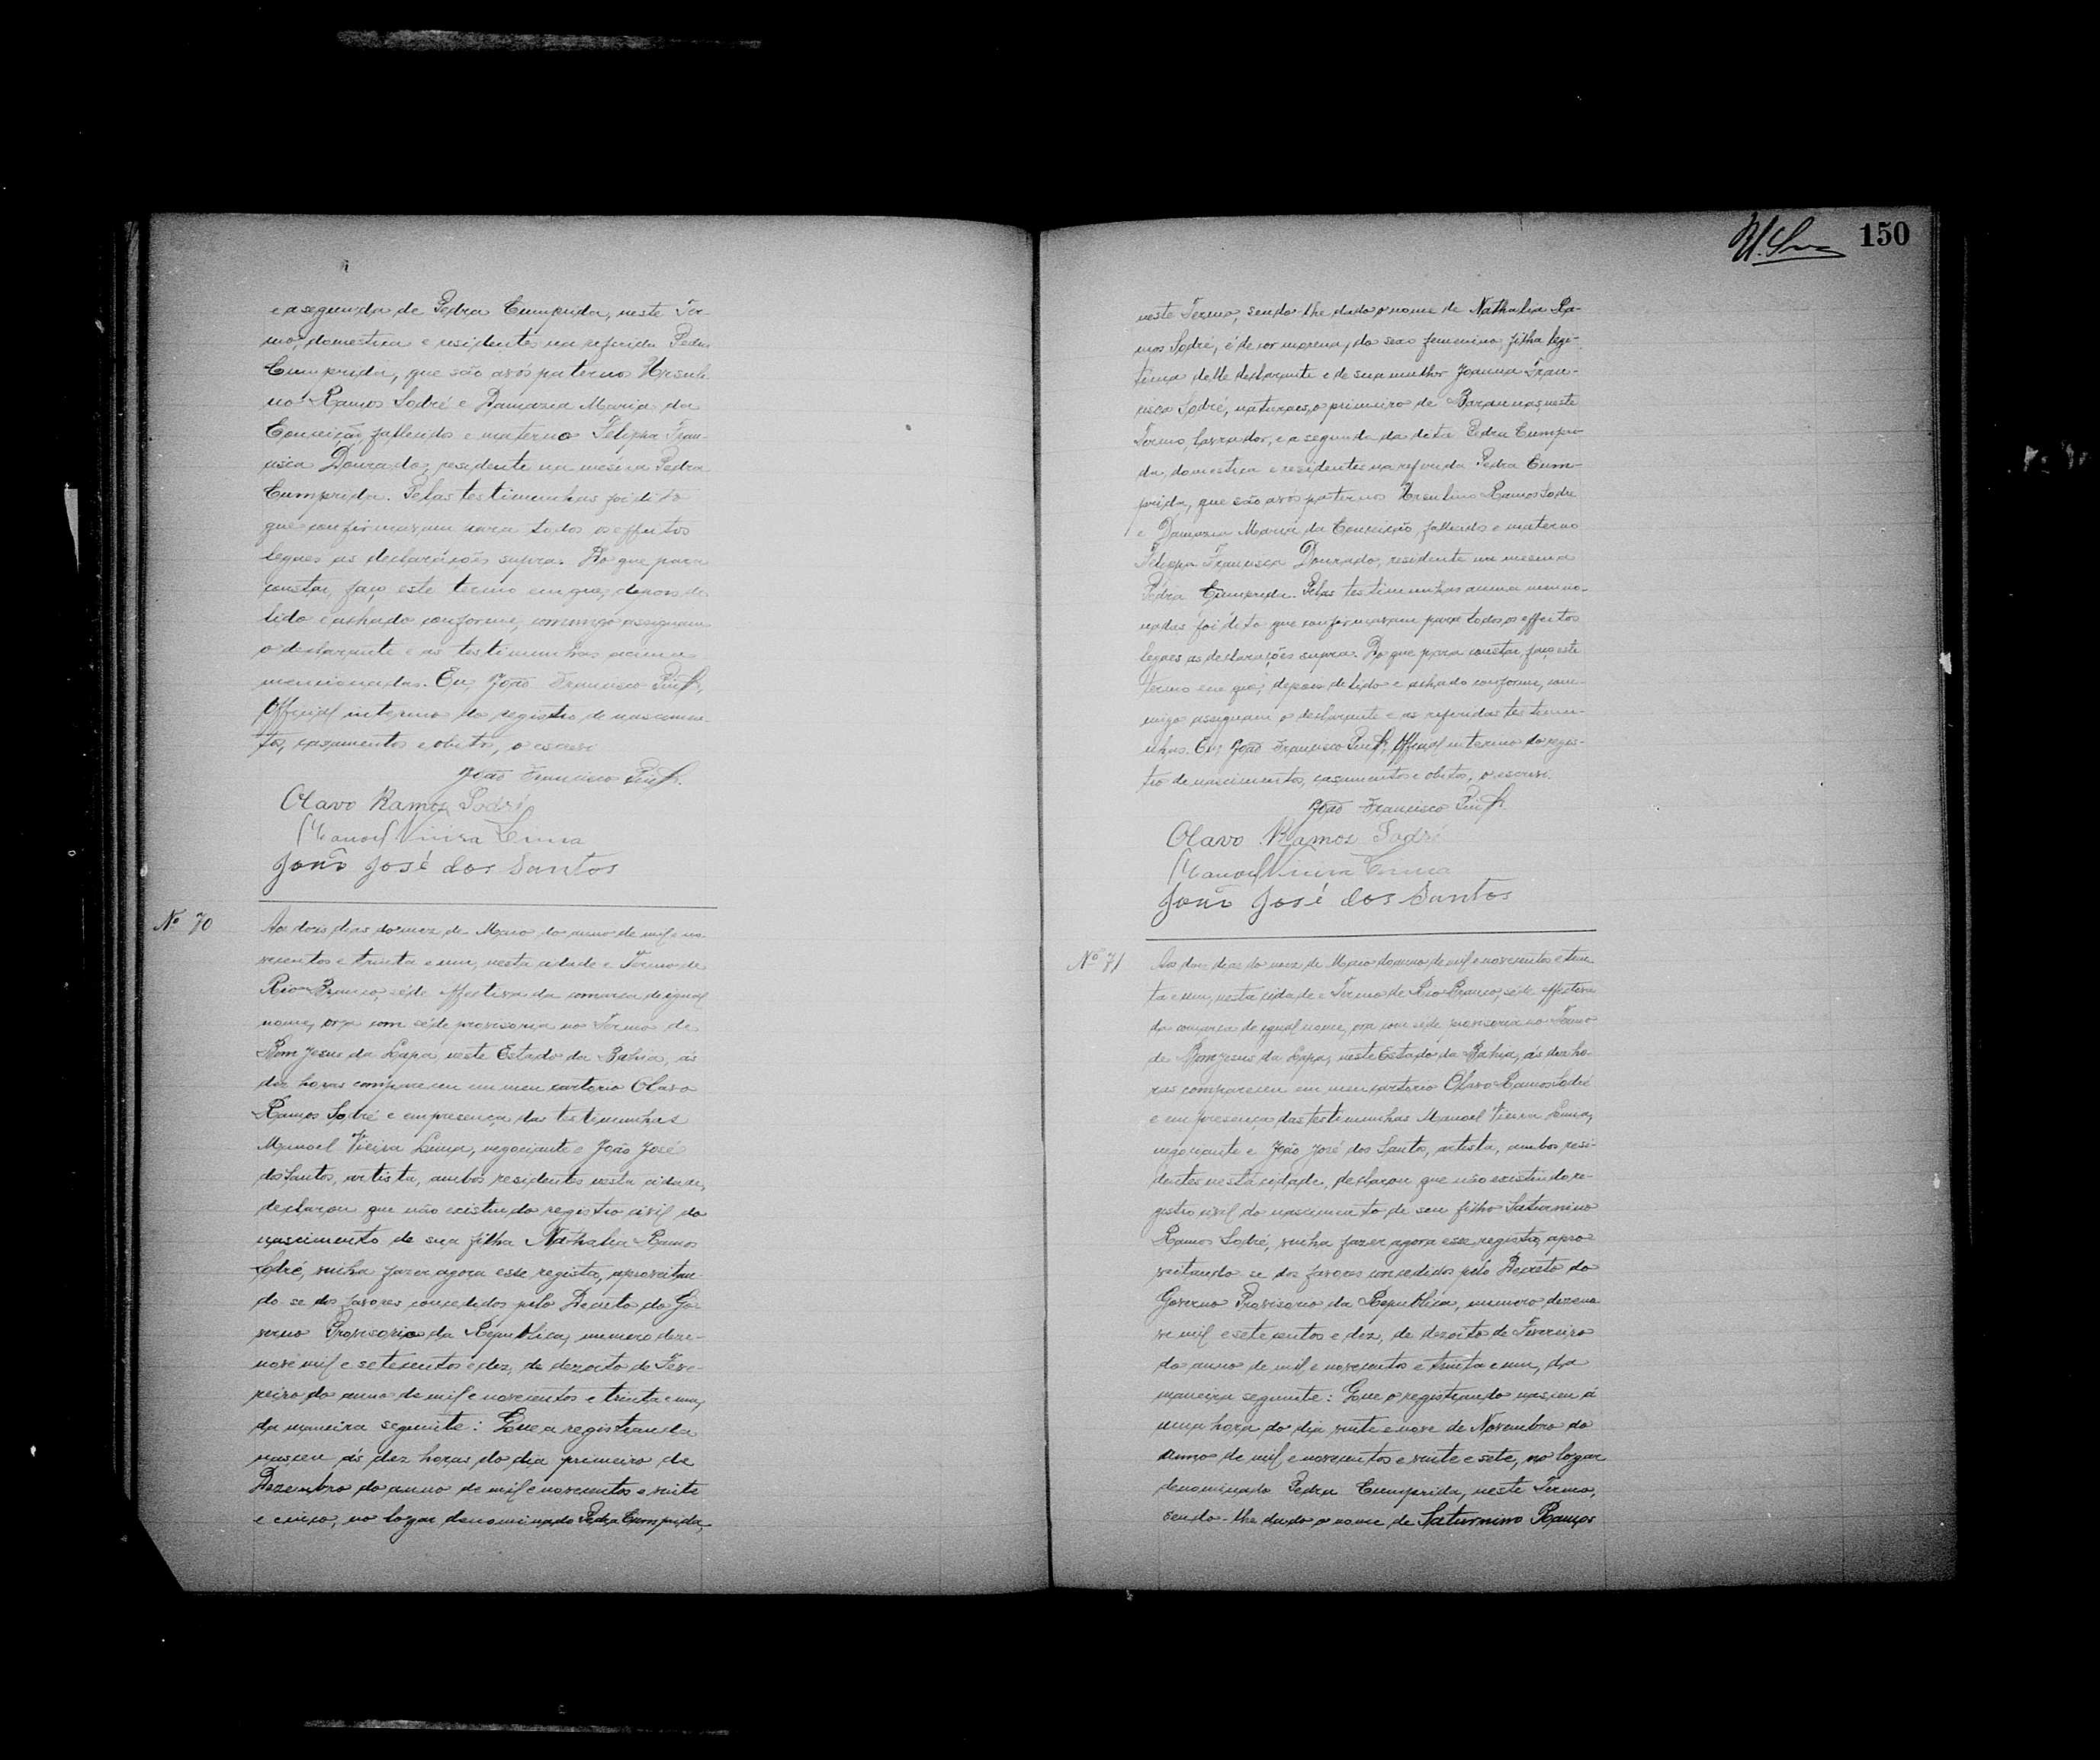 e a segunda de Pedra Cumprida, neste Ter-
mo, domestica e residentes na referida Pedra
Cumprida, que são avós paternos Ursuli-
no Ramos Sodré e Damazia Maria da
Conceição, fallecidos e materno Felippa Fran-
cisca Dourado, residente na mesma Pedra
Cumprida. Pelas testimunhas foi dito
que confirmavam para todos os effeitos
legaes as declarações supra. Do que para
constar, faço este termo em que, depois de
lido e achado conforme, commigo assignam
o declarante e as testimunhas acima
mencionadas. Eu, João Francisco
Official interino do registro de nascimen-
tos, casamentos e obitos, o escrevi.
João Francisco
Olavo Ramos Sodré
Manoel Vieira Lima
João José dos Santos
Nº 70
Aos dois dias do mez de Maio do anno de mil e no-
vecentos e trinta e um, nesta cidade e Termo de
Rio Branco, séde effectiva da comarca de igual
nome, ora com séde provisoria no Termo de
Bom Jesus da Lapa, neste Estado da Bahia, ás
dez horas compareceu em meu cartorio Olavo
Ramos Sodré e em presença das testimunhas
Manoel Vieira Lima, negociante e João José
dos Santos, artista, ambos residentes nesta cidade,
declarou que não existindo registro civil do
nascimento de sua filha Nathalia Ramos
Sodré, vinha fazer agora esse registo, aproveitan-
do se dos favores concedidos pelo Decreto do Go-
verno Provisorio da Republica, numero deze-
nove mil e setecentos e dez, de dezoito de Feve-
reiro do anno de mil e novecentos e trinta e um,
da maneira seguinte: Que a registranda
nasceu ás dez horas do dia primeiro de
Dezembro do anno de mil e novecentos e vinte
e cinco, no logar denominado Pedra Cumprida,
150
neste Termo, sendo-lhe dado o nome de Nathalia Ra-
mos Sodré, é de cor morena, do sexo femenino, filha legi-
tima delle declarante e de sua mulher Joanna Fran-
cisca Sodré, naturaes, o primeiro de Baraunas, neste
Termo, lavrador, e a segunda da dita Pedra Cumpri-
da, domestica e residentes na referida Pedra Cum-
prida, que são avós paternos Ursulino Ramos Sodré
e Damazia Maria da Conceição, fallecidos e materno
Felippa Francisca Dourado, residente na mesma
Pedra Cumprida. Pelas testimunhas acima mencio-
nadas foi dito que confirmavam para todos os effeitos
legaes as declarações supra. Do que para constar, faço este
termo em que, depois de lido e achado conforme, com-
migo assignam o declarante e as referidas testimu-
nhas. Eu, João Francisco Official interino do regis-
tro de nascimentos, casamentos e obitos, o escrevi.
João Francisco
Olavo Ramos Sodré
Manoel Vieira Lima
João José dos Santos
Nº 71
Aos dois dias do mez de Maio do anno de mil e novecentos e trin-
ta e um, nesta cidade e Termo de Rio Branco, séde effectiva
da comarca de igual nome, ora com séde provisoria no Termo
de Bom Jesus da Lapa, neste Estado da Bahia, ás dez ho-
ras compareceu em meu cartorio Olavo Ramos Sodré
e em presença das testimunhas Manoel Vieira Lima,
negociante e João José dos Santos, artista, ambos resi-
dentes nesta cidade, declarou que não existindo re-
gistro civil do nascimento de seu filho Saturnino
Ramos Sodré, vinha fazer agora esse registo, apro-
veitando se dos favores concedidos pelo Decreto do
Governo Provisorio da Republica, numero dezeno-
ve mil e setecentos e dez, de dezoito de Fevereiro
do anno de mil e novecentos e trinta e um, da
maneira seguinte: Que o registrando nasceu á
uma hora do dia vinte e nove de Novembro do
anno de mil e novecentos e vinte e sete, no logar
denominado Pedra Cumprida, neste Termo,
sendo-lhe dado o nome de Saturnino Ramos